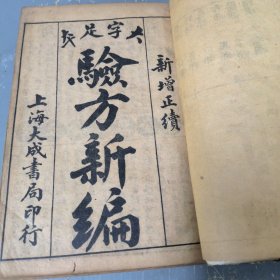 大字足本
新增正續
驗方新編
上海大成書局印行